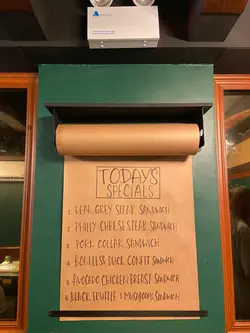 TODAYS
SPECIALS
1. BEAR GREY STEAK SANDWICH
2. PHILLY CHEESESTEAK SANDWICH
3. PORK COLLAR SANDWICH
4. BONELESS DUCK CONFIT SANDWICH
5. AVOCADO CHICKEN BREAST SANDWICH
6. BLACK TRUFFLE & MUSHROOMS SANDWICH